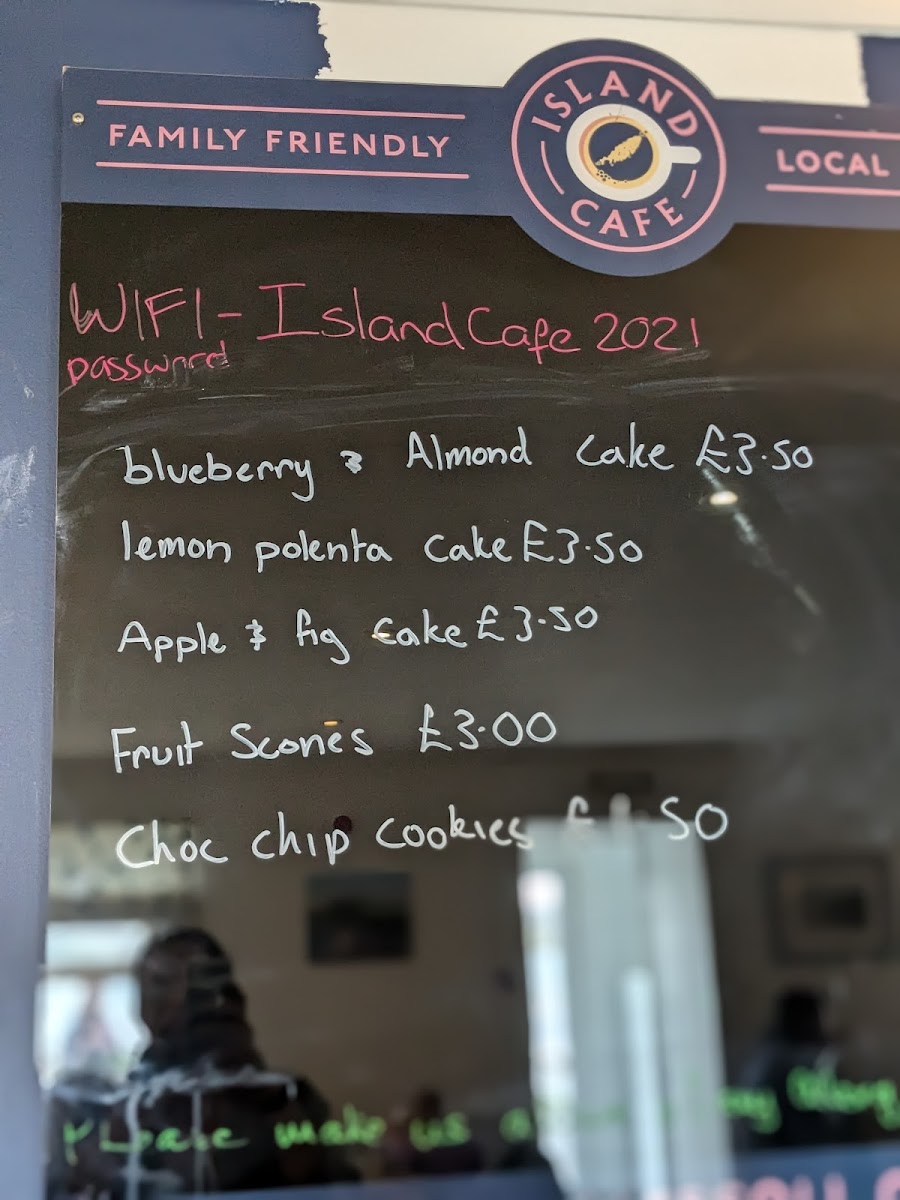 FAMILY FRIENDLY
ISLAND CAFE
LOCAL
WIFI - IslandCafe 2021
password
blueberry & Almond Cake £3.50
lemon polenta Cake £3.50
Apple & fig Cake £3.50
Fruit Scones £3.00
Choc chip cookies 50
Please make us